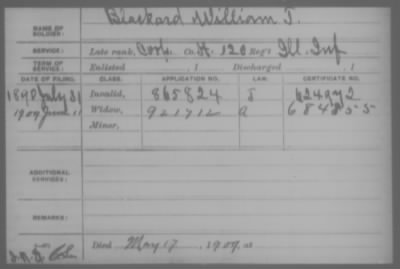 NAME OF SOLDIER: Blackard William T.
SERVICE: Late rank, Corp. Co. H. 120 Reg't Ill. Inf
TERM OF SERVICE: Enlisted , 1 Discharged , 1
DATE OF FILING. CLASS. APPLICATION NO. LAW. CERTIFICATE NO.
1898 July 21 Invalid, 865824 J 624972
1909 June 11 Widow, 921712 a 684855
Minor,
ADDITIONAL SERVICES:
REMARKS:
Died May 17, 1909, at